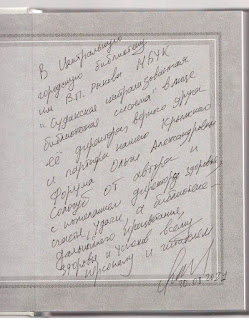 В Центральную
городскую библиотеку
им В.П. Рыкова МБУК
"Судакская централизованная
библиотечная система" в лице
её директора верного друга
и партнёра нашего Крымского
Форума Ольги Александровны
от автора и
с пожеланием директору здоровья,
счастья, удачи, а библиотеке -
дальнейшего процветания,
здоровья и успехов всему
персоналу и читателям